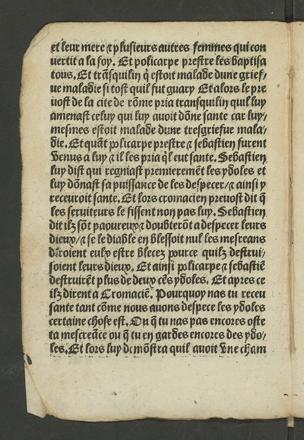 et leur mere ⁊ plusieurs autres femmes qui con
vertit a la foy. Et policarpe prestre les baptisa
tous. Et trãsquilin q̃ estoit malade dune grief-
ue maladie si tost quil fut guary Et alors le pre
uost de la cite de rõme pria transquilin quil luy
amenast celuy qui luy auoit dõne sante car luy-
mesmes estoit malade dune tresgriefue mala-
die. Et quãt policarpe prestre ⁊ sebastien furent
venus a luy ⁊ il les pria q̃l eut sante. Sebastien
luy dist qui regniast premieremẽt les ydoles et
luy dõnast sa puissance de les despecer/⁊ ainsi y
receuroit sante. Et lors cromacien preuost dit q̃
les seruiteurs le fissent non pas luy. Sebastien
dit ilz sõt paoureux⁊ doubterõt a despecer leurs
dieux/⁊ se le diable en blessoit nul les mescreans
diroient eulx estre blecez pource quilz destrui-
soient leurs dieux. Et ainsi policarpe ⁊ sebastiẽ
destruirẽt plus de deux cẽs ydoles. Et apres ce
ilz dirent a Cromaciẽ. Pourquoy nas tu receu
sante tant cõme nous auons despece les ydoles
certaine chose est. Ou q̃ tu nas pas encores oste
ta mescreãce ou q̃ tu en gardes encores des ydo-
les. Et lors luy demõstra quil auoit vne cham